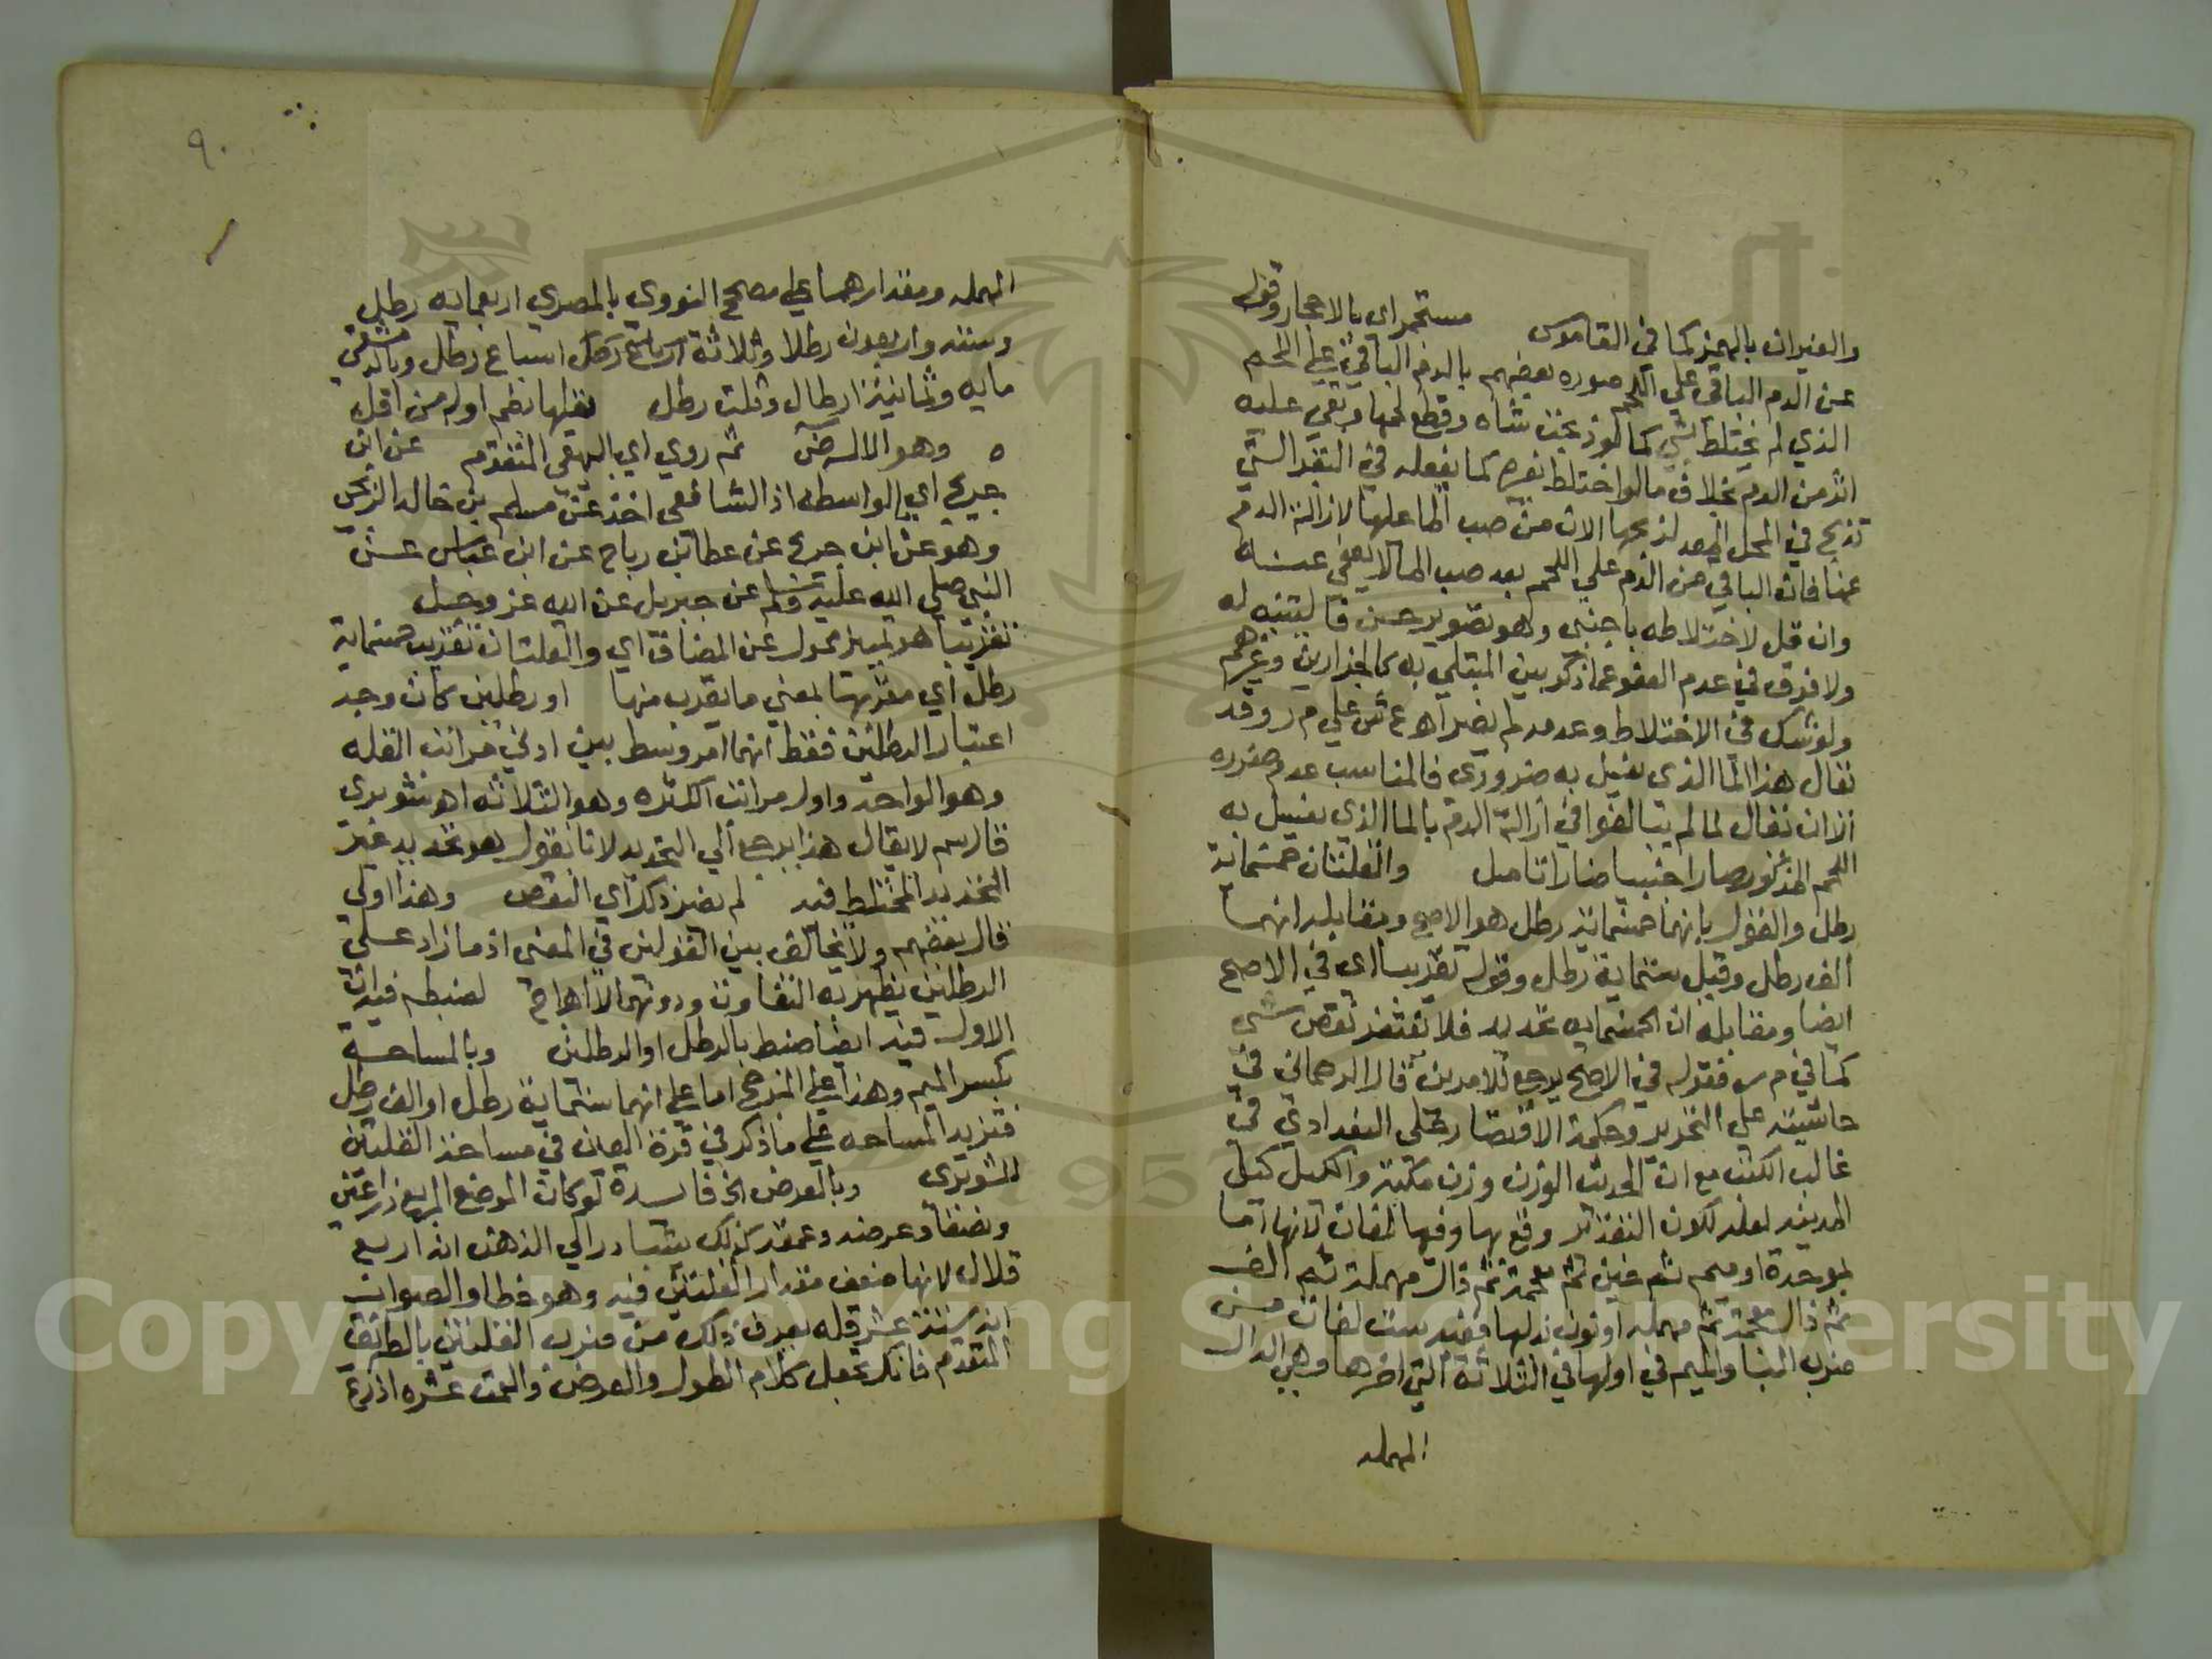 والفيران بالهمز كما في القاموس مستجمراي بالاحجار وقوله
عن الدم الباقي علي اللحم صوره بعضهم بالدم الباقي علي اللحم
الذي لم يختلط بشي كما لو ذبحت شاه وقطع لحمها وبقي عليه
اثر من الدم بخلاف ما لو اختلط بغيره كما يفعله في البقر التي
تذبح في المحل المعد لذبحها الان من صب الما عليها لازالة الدم
عنها فان الباقي من الدم علي اللحم بعد صب الما لا يعفي عنه
وان قل لاختلاطه باجنبي وهو تصوير حسن فاليتنبه له
ولا فرق في عدم العفو عما ذكر بين المبتلي به كالجزارين وغيرهم
ولو شك في الاختلاط وعدمه لم يضر اهـ ع ش علي م ر وقد
يقال هذا الما الذي يغسل به ضروري فالمناسب عدم ضرره
الا ان يقال لما لم يتبالغوا في ازالة الدم بالما الذي يغسل به
اللحم المذكور صار اجنبيا ضارا تامل والقلتان خمسماية
رطل والقول بانهما خمسماية رطل هو الاصح ومقابله انهما
الف رطل وقيل ستماية رطل وقوله تقريبا اي في الاصح
ايضا ومقابله ان الخمسمايه تحديد فلا يغتفر نقص شي
كما في م ر فقوله في الاصح يرجع للامرين قال الرحماني في
حاشيته علي التحرير وحكمة الاقتصار علي البغدادي في
غالب الكتب مع ان الحديث الوزن وزن مكة والكيل كيل
المدينه لعله لكون التقدير وقع بها وفيها لغات لانها اما
بموحدة او ميم ثم غين ثم معجمة ثم دال مهملة ثم الف
ثم ذال معجمة ثم مهمله او نون بدلها فهذه ست لغات من
ضرب البا والميم في اولها في الثلاثة التي اخرها وهي الدال
المهمله
٩٠
المهمله ومقدارهما علي مصحح النووي بالمصري اربعمايه رطل
وستة واربعون رطلا وثلاثة اسباع رطل وبالدمشقي
مايه وثمانية ارطال وثلث رطل اوله من اقل
٥ وهو الالـ ثم روي اي البيهقي المتقدم عن ابن
جريج اي بالواسطه اذ الشافعي اخذ عن مسلم بن خالد الزنجي
وهو عن ابن جريج عن عطا بن رباح عن ابن عباس عن
النبي صلي الله عليه وسلم عن جبريل عن الله عز وجل
تقريبا هو تمييز محول عن المضاف اي والقلتان تقريب خمسماية
رطل اي مقربها بمعني ما يقرب منها او رطلين كان وجه
اعتبار الرطلين فقط انهما امر وسط بين ادني مراتب القله
وهو الواحد واول مراتب الكثره وهو الثلاثه اهـ شوبري
قال سم لا يقال هذا يرجع الي التحديد لانا نقول هو تحديد غير
التحديد المختلط فيه لم يضر ذلك اي النقص وهذا اولي
قال بعضهم ولا تخالف بين القولين في المعني اذ ما زاد علي
الرطلين يظهر به التفاوت ودونهما لا اهـ اج لضبطه فيه ان
الاول فيه ايضا ضبط بالرطل او الرطلين وبالمساحة
بكسر الميم وهذا علي المرجح اما علي انهما ستماية رطل او الف رطل
فتزيد المساحه علي ما ذكر في قرة العين في مساحة القلتين
للشوبري وبالعرض الخ فايدة لو كان الموضع المربع ذراعين
ونصفا وعرضه وعمقه كذلك يتبادر الي الذهن انه اربع
قلال لانها ضعف مقدار القلتين فيه وهو خطا والصواب
انه ستة عشر قله يعرف ذلك من ضرب القلتين بالطريق
المتقدم فانك تجعل كلا م الطول والعرض والعمق عشره اذرع